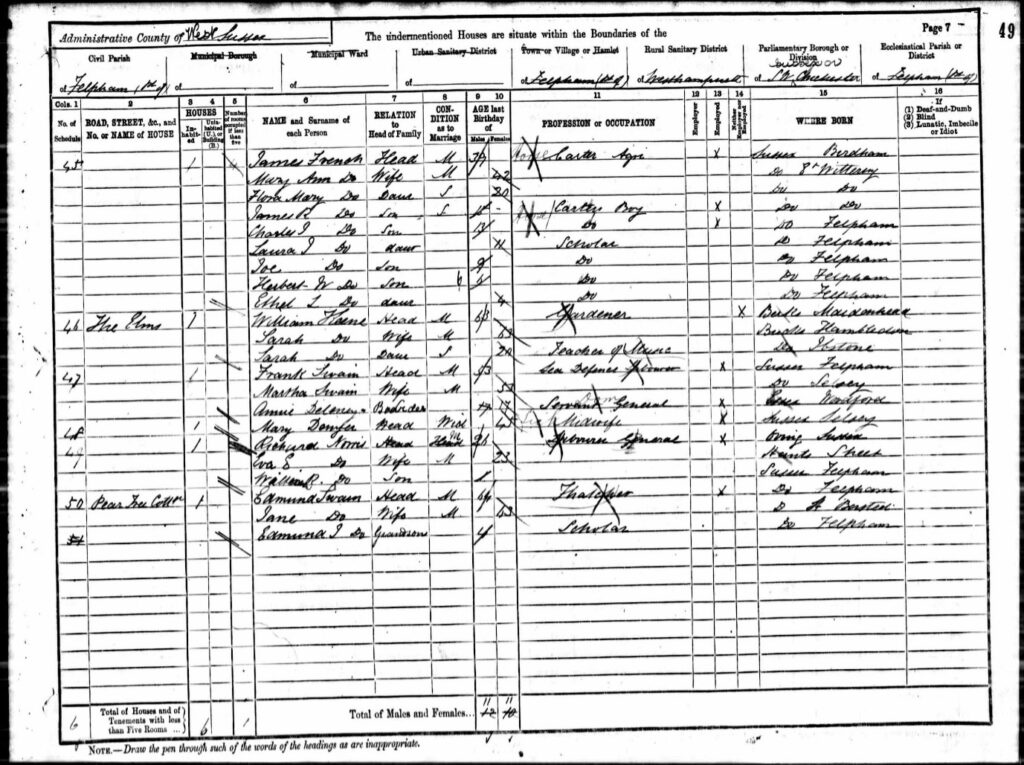 Administrative County of West Sussex The undermentioned Houses are situate within the Boundaries of the Page 7 49
Civil Parish Municipal Borough Municipal Ward Urban Sanitary District Town or Village or Hamlet Rural Sanitary District Parliamentary Borough or Division Ecclesiastical Parish or District
of Felpham (Pt of) of of of of Felpham (Pt of) of Westhampnett of S.W. Chichester of Felpham (Pt of)
Cols. 1 2 3 4 5 6 7 8 9 10 11 12 13 14 15 16
No. of Schedule ROAD, STREET, &c., and No. or NAME of HOUSE HOUSES Inhabited Uninhabited (U.), or Building (B.) Number of rooms occupied if less than five NAME and Surname of each Person RELATION to Head of Family CONDITION as to Marriage AGE last Birthday of Males Females PROFESSION or OCCUPATION Employer Employed Neither Employer nor Employed WHERE BORN If (1) Deaf-and-Dumb (2) Blind (3) Lunatic, Imbecile or Idiot
45 1 4 James French Head M Carter Agri X Sussex Birdham
Mary Ann Do Wife M 42 Do Et Wittering
Flora Mary Do Daur S 20 Do Do
James R Do Son S Carters Boy X Do Do
Charles J Do Son 13 Do X Do Felpham
Laura J Do daur 11 Scholar Do Felpham
Joe Do Son 9 Do Do Felpham
Herbert W Do Son 6 Do Do Felpham
Ethel L Do daur 4 Do Do Felpham
46 The Elms 1 William Head M 63 Gardener X Berks Maidenhead
Sarah Do Wife M 63 Bucks Hambledon
Sarah Do Daur S 20 Teacher of Music Do Ibstone
47 1 Frank Swain Head M 53 Sea Defence X Sussex Felpham
Martha Swain Wife M 53 Do Selsey
Annie Boarder 17 Servant General X Essex Woodford
48 1 Mary Head Wid 45 Midwife X Sussex Selsey
49 1 Richard Norris Head M 26 Labourer General X Oving Sussex
Eva E Do Wife M 23 Hants Street
William R. Do Son 1 Sussex Felpham
50 Pear Tree Cottge 1 Edmund Swain Head M 64 Thatcher X Do Felpham
Jane Do Wife M 63 D
51 Edmund J Do Grandson 4 Scholar Do Felpham
6 Total of Houses and of Tenements with less than Five Rooms ... 6 1 Total of Males and Females... 11 12 11 10
NOTE.—Draw the pen through such of the words of the headings as are inappropriate.